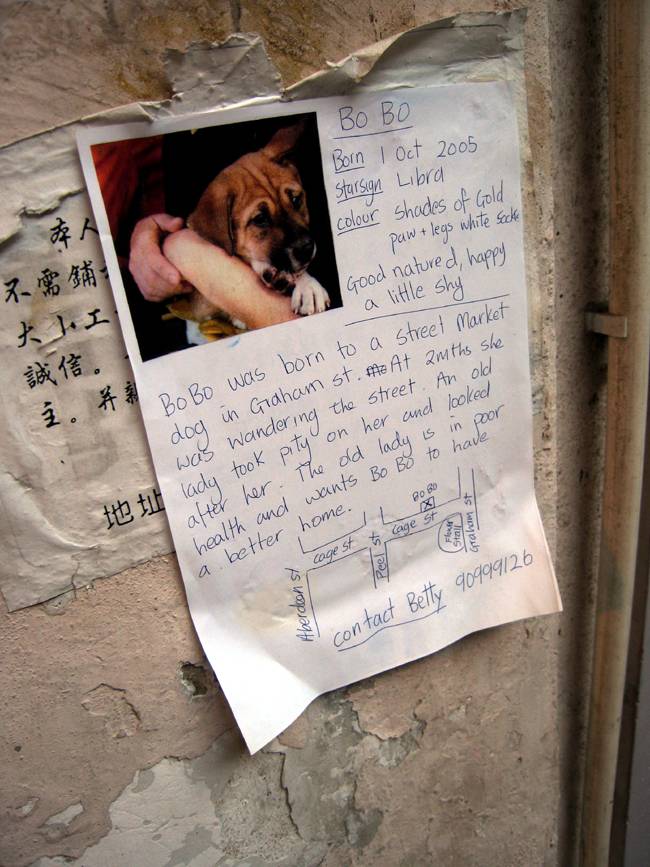 Bo Bo
Born 1 Oct 2005
Starsign Libra
colour Shades of Gold
paw + legs white socks
Good natured, happy
a little shy
BoBo was born to a street Market
dog in Graham St. At 2mths she
was wandering the street. An old
lady took pity on her and looked
after her. The old lady is in poor
health and wants Bo Bo to have
a better home.
BO BO
cage st
cage st
Peel st
Flower Stall
Graham st
Aberdeen st
contact Betty 90999126
本人
不需鋪
大小工
誠信。
主。并親
地址